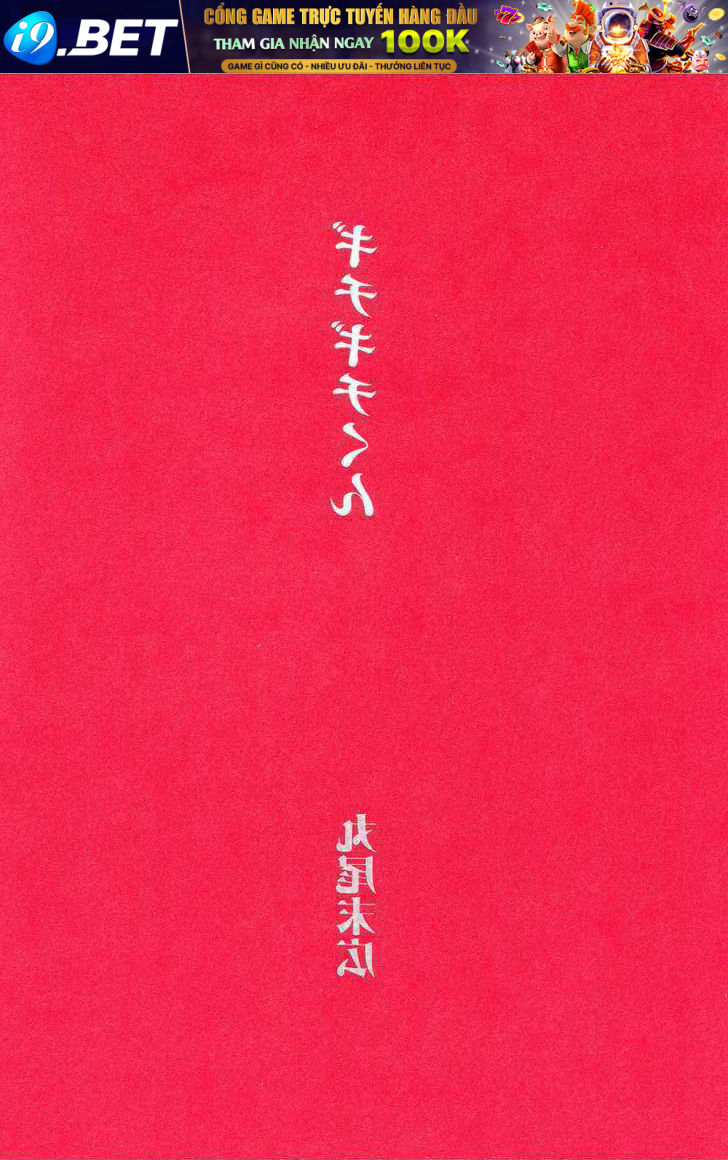 i9.BET
CỔNG GAME TRỰC TUYẾN HÀNG ĐẦU
THAM GIA NHẬN NGAY 100K
GAME GÌ CŨNG CÓ - NHIỀU ƯU ĐÃI - THƯỞNG LIÊN TỤC
ギチギチくん
丸尾末広